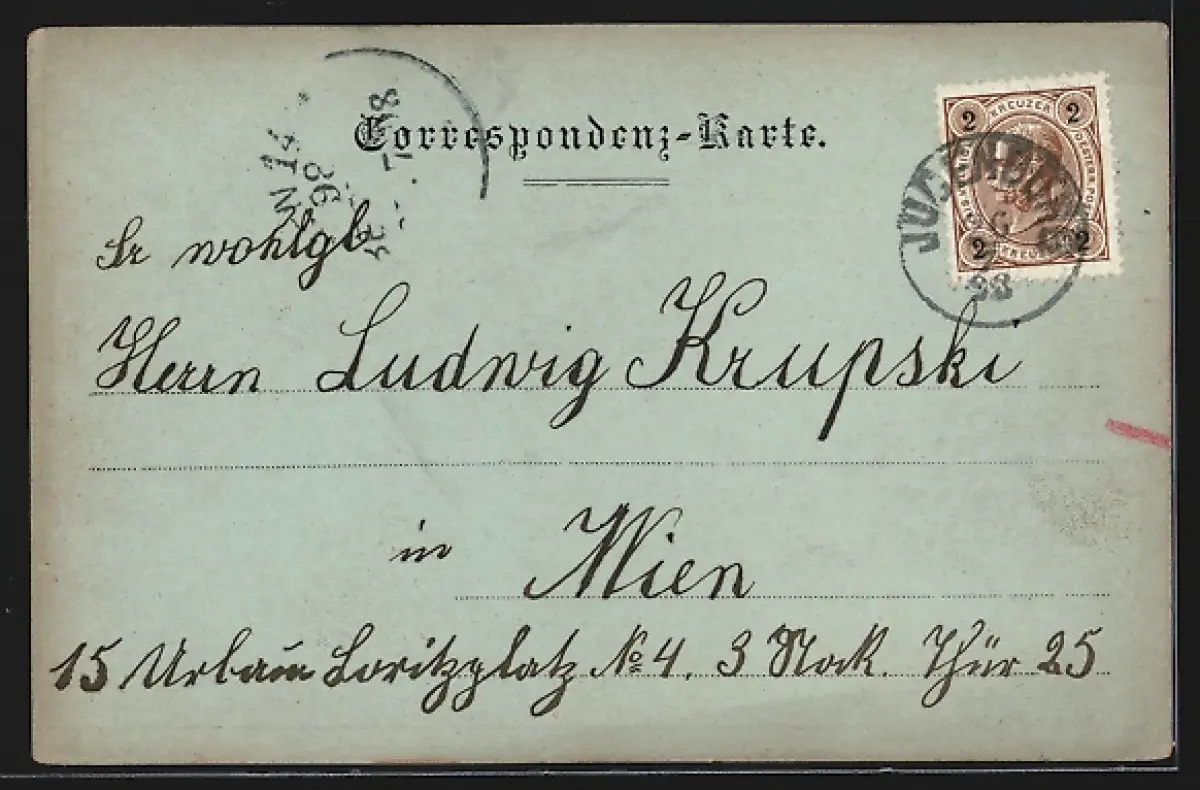 Correspondenz-Karte.
2 KREUZER 2
2 KREUZER 2
JUDENBURG
6
98
Sr wohlgb
Herrn Ludwig Krupski
in Wien
15 Urban Loritzplatz No 4. 3 Stock. Thür 25